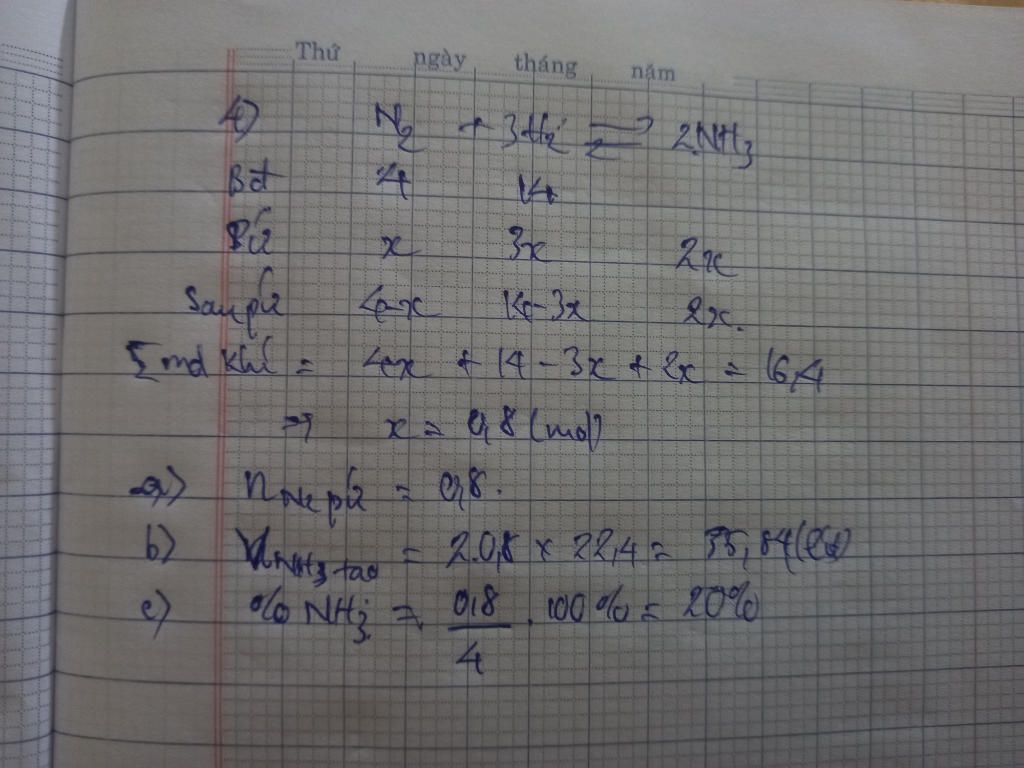 Thứ ngày tháng năm
4) N2 + 3H2 ⇌ 2NH3
Bđ 4 14
Pứ x 3x 2x
Sau pứ 4-x 14-3x 2x.
Σ mol khí = 4-x + 14 - 3x + 2x = 16,4
⇒ x = 0,8 (mol)
a) nN2 pứ = 0,8.
b) VNH3 tạo = 2.0,8 x 22,4 = 35,84 (lít)
c) % NH3 = 0,8/4 . 100% = 20%